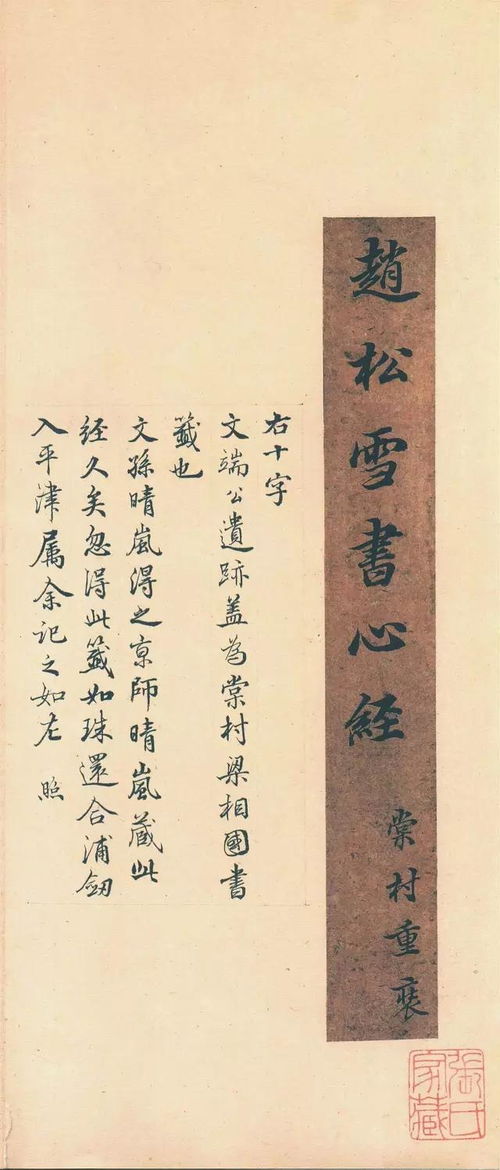 趙松雪書心經
棠村重裝
右十字
文端公遺跡蓋為棠村梁相國書
籤也
文孫晴嵐得之京師晴嵐藏此
經久矣忽得此籤如珠還合浦劒
入平津属余記之如左 照
張氏
家藏